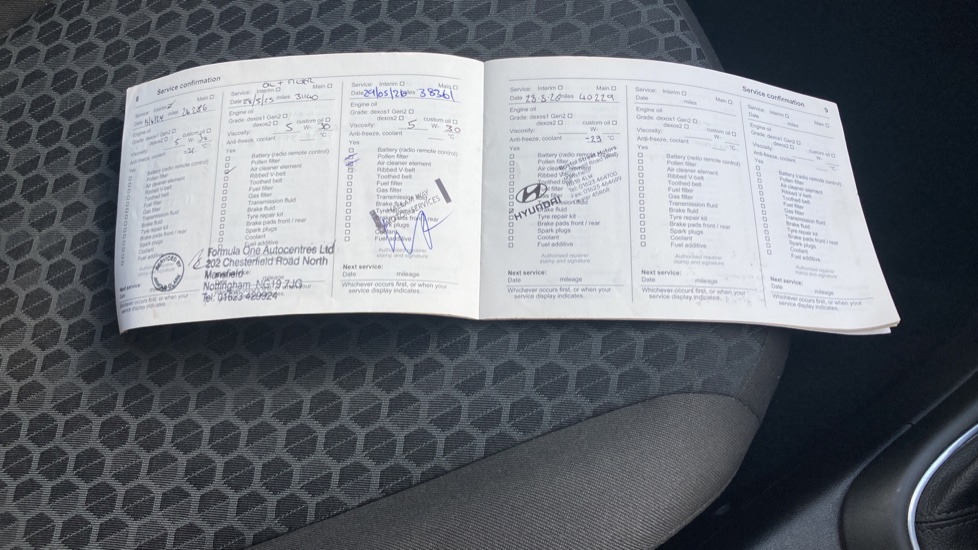 8
Service confirmation
Service: Interim Main
Date miles 26286
Engine oil
Grade: dexos1 Gen2
dexos2 custom oil
Viscosity: 5 W- 30
Anti-freeze, coolant °C
Yes
Battery (radio remote control)
Pollen filter
Air cleaner element
Ribbed V-belt
Toothed belt
Fuel filter
Gas filter
Transmission fluid
Brake fluid
Tyre repair kit
Brake pads front / rear
Spark plugs
Coolant
Fuel additive
Next service:
service display indicates.
Formula One Autocentres Ltd
202 Chesterfield Road North
Mansfield
Nottingham NG19 7JG
Tel: 01623 420924
Service: Interim Main
Date miles 31140
Engine oil
Grade: dexos1 Gen2
dexos2 custom oil
Viscosity: 5 W- 30
Anti-freeze, coolant °C
Yes
Battery (radio remote control)
Pollen filter
Air cleaner element
Ribbed V-belt
Toothed belt
Fuel filter
Gas filter
Transmission fluid
Brake fluid
Tyre repair kit
Brake pads front / rear
Spark plugs
Coolant
Fuel additive
mileage
Whichever occurs first, or when your
service display indicates.
Service: Interim Main
Date miles 38361
Engine oil
Grade: dexos1 Gen2
dexos2 custom oil
Viscosity: 5 W- 30
Anti-freeze, coolant °C
Yes
Battery (radio remote control)
Pollen filter
Air cleaner element
Ribbed V-belt
Toothed belt
Fuel filter
Gas filter
Transmission
Brake
SERVICES
plugs
Fuel additive
Authorised repairer
stamp and signature
Next service:
Date mileage
Whichever occurs first, or when your
service display indicates.
Service: Interim Main
Date miles 40229
Engine oil
Grade: dexos1 Gen2
dexos2 custom oil
Viscosity: W-
Anti-freeze, coolant -23 °C
Yes
Battery (radio remote control)
Pollen filter
Air cleaner
Ribbed
Toothed
Street Motors
HYUNDAI
Brake fluid
Tyre repair kit
Brake pads front / rear
Spark plugs
Coolant
Fuel additive
Authorised repairer
stamp and signature
Next service:
Date mileage
Whichever occurs first, or when your
service display indicates.
Service: Interim Main
Date miles
Engine oil
Grade: dexos1 Gen2
dexos2 custom oil
Viscosity: W-
Anti-freeze, coolant °C
Yes
Battery (radio remote control)
Pollen filter
Air cleaner element
Ribbed V-belt
Toothed belt
Fuel filter
Gas filter
Transmission fluid
Brake fluid
Tyre repair kit
Brake pads front / rear
Spark plugs
Coolant
Fuel additive
Authorised repairer
stamp and signature
Next service:
Date mileage
Whichever occurs first, or when your
service display indicates.
Service confirmation
9
Service: Interim Main
Date miles
Engine oil
Grade: dexos1 Gen2
dexos2 custom oil
Viscosity: W-
Anti-freeze, coolant °C
Yes
Battery (radio remote control)
Pollen filter
Air cleaner element
Ribbed V-belt
Toothed belt
Fuel filter
Gas filter
Transmission fluid
Brake fluid
Tyre repair kit
Brake pads front / rear
Spark plugs
Coolant
Fuel additive
Authorised repairer
stamp and signature
Next service:
Date mileage
Whichever occurs first, or when your
service display indicates.